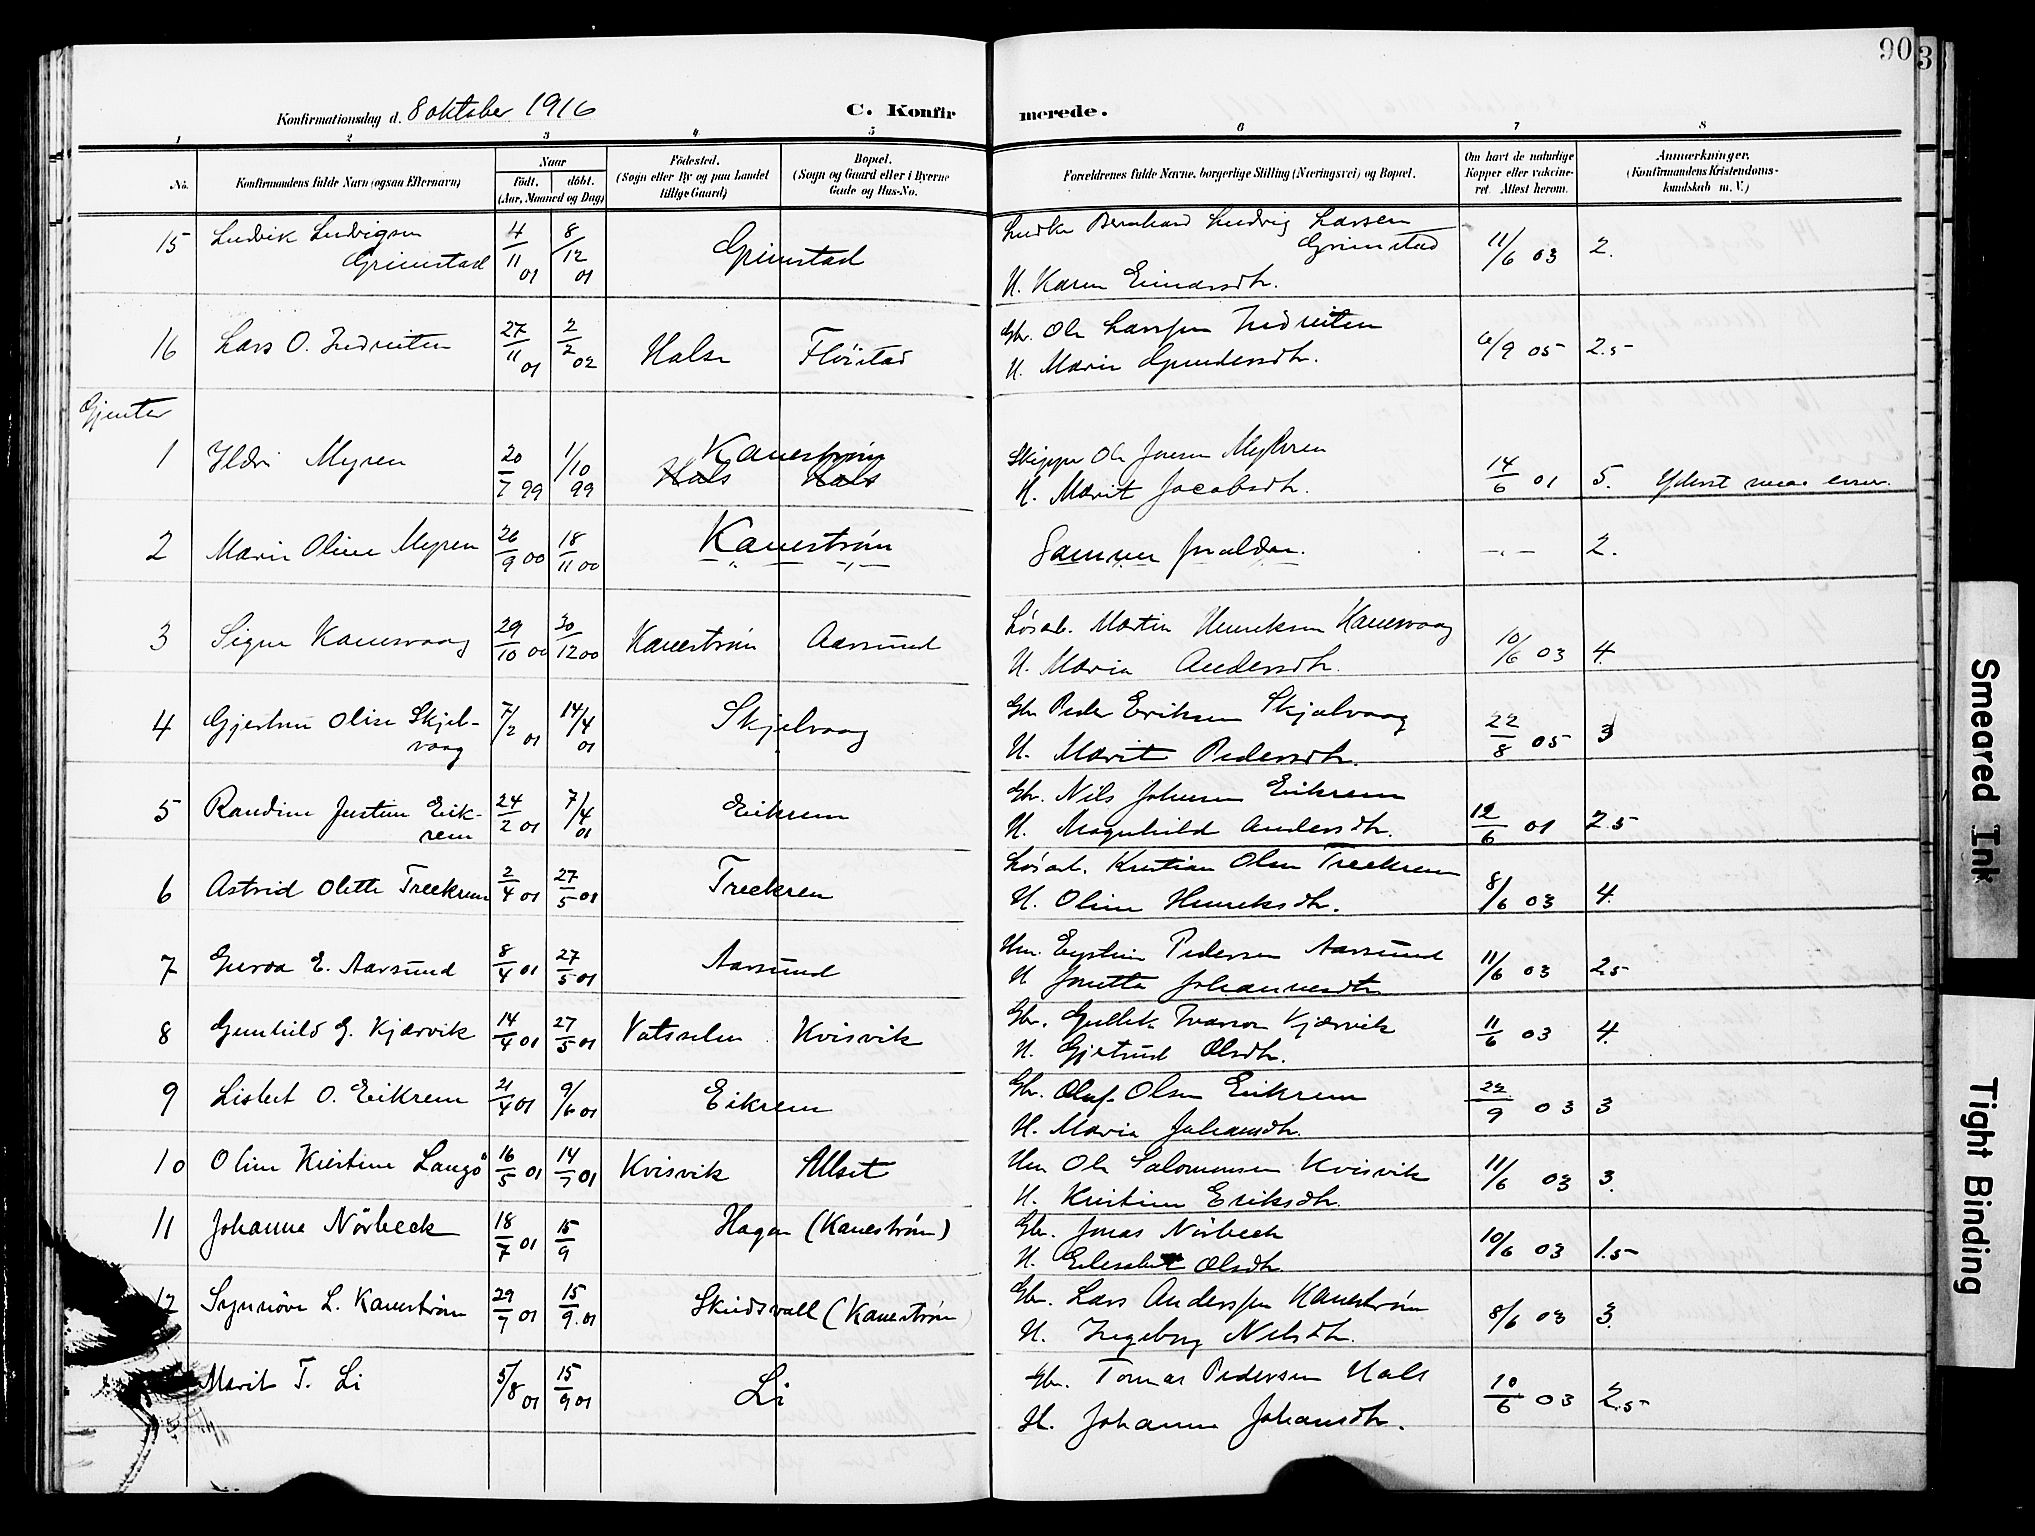 90
3
Konfirmationsdag d. 8 oktober 1916 C. Konfir merede.
1 2 3 4 5 6 7 8
No. Konfirmandens fulde Navn (ogsaa Efternavn) Naar födt. döbt. (Aar, Maaned og Dag) Födested. (Sogn eller By og paa Landet tillige Gaard) Bopæl. (Sogn og Gaard eller i Byerne Gade og Hus-No. Forældrenes fulde Navne, borgerlige Stilling (Næringsvei) og Bopæl. Om havt de naturlige Kopper eller vakcineret. Attest herom. Anmærkninger. (Konfirmandens Kristendomskundskab m. V.)
15 Ludvik Ludvigsen Grimstad 4/11 01 8/12 01 Grimstad Bernhard Ludvig Larsen Grimstad 11/6 03 2.
H. Karen Einarsdtr.
16 Lars O. Indreiten 27/11 01 2/2 02 Halse Flöistad Gbr. Ole Larssen Indreiten 6/9 05 2.5
H. Marie Gundersdtr.
Gjenter
1 Ildri Myren 20/7 99 1/10 99 Kanestrøm Hals Hals Skipper Ole Jonsen Myren 14/6 01 5.
H. Marit Jacobsdtr.
2 Marie Oline Myren 26/9 00 18/11 00 Kanestrøm Samme forældre. -"- 2.
3 Signe Kanesvaag 29/10 00 30/12 00 Kanestrøm Aarsund Løsarb. Martin Henriksen Kanesvaag 10/6 03 4.
H. Maria Andersdtr.
4 Gjertrue Olise Skjelvaag 7/2 01 14/4 01 Skjelvaag Gbr. Peder Eriksen Skjelvaag 22/8 05 3
H. Marit Pedersdtr.
5 Randine Justine Eikrem 24/2 01 7/4 01 Eikrem Gbr. Nils Johnsen Eikrem 12/6 01 2.5
H. Magnhild Andersdtr.
6 Astrid Olette Treekrem 2/4 01 27/5 01 Treekrem Løsarb. Kristian Olsen Treekrem 8/6 03 4.
H. Oline Henriksdtr.
7 Gurda E. Aarsund 8/4 01 27/5 01 Aarsund Hm. Eystein Pedersen Aarsund 11/6 03 2.5
H. Jonetta Johannesdtr.
8 Gunhild G. Kjærvik 14/4 01 27/5 01 Vatsselen Kvisvik Gbr. Gullik Ivarson Kjærvik 11/6 03 4.
H. Gjertrud Olsdtr.
9 Lisbet O. Eikrem 21/4 01 9/6 01 Eikrem Gbr. Oluf Olsen Eikrem 22/9 03 3
H. Maria Johansdtr.
10 Oline Kristine Langö 16/5 01 14/7 01 Kvisvik Ullset Hm Ole Salomonsen Kvisvik 11/6 03 3.
H. Kristine Eriksdtr.
11 Johanna Nörbeck 18/7 01 15/9 Hagen (Kanestrøm) Gbr. Jonas Nörbeck 10/6 03 1.5
H. Elisabet Olsdtr
12 Synnöve L. Kanestrøm 29/7 01 15/9 01 Skudsvall (Kanestrøm Gbr. Lars Anderssen Kanestrøm 8/6 03 3.
H. Ingeborg Nilsdtr.
Marit T. Li 5/8 01 15/9 01 Li Gbr. Tomas Pedersen Hals 10/6 03 2.5
H. Johanne Johansdtr.
Smeared Ink
Tight Binding